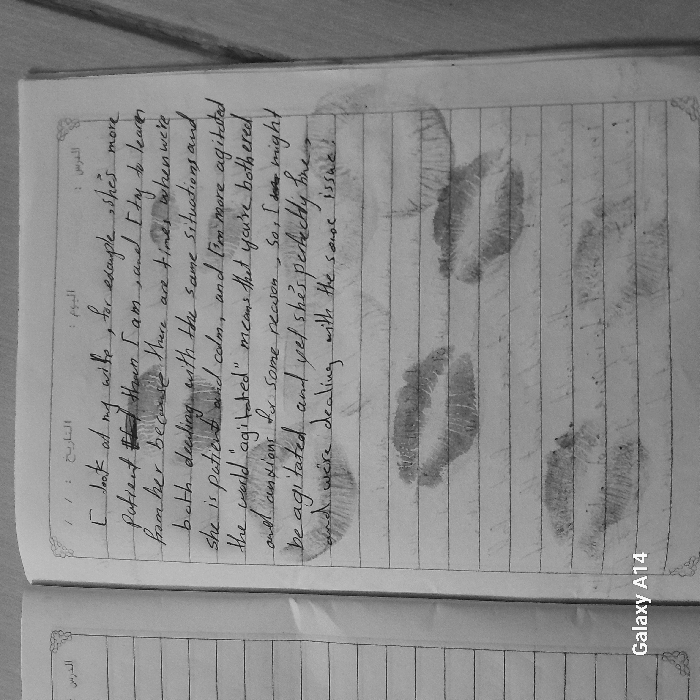 I look at my wife, for example, she's more
patient than I am, and I try to learn
from her because there are times when we're
both dealing with the same situations and
she is patient and calm, and I'm more agitated
the world "agitated" means that you're bothered
and anxious for some reason, so I might
be agitated and yet she's perfectly fine
and we're dealing with the same issue.
التاريخ : / /
اليوم :
الدرس :
الدرس :
Galaxy A14